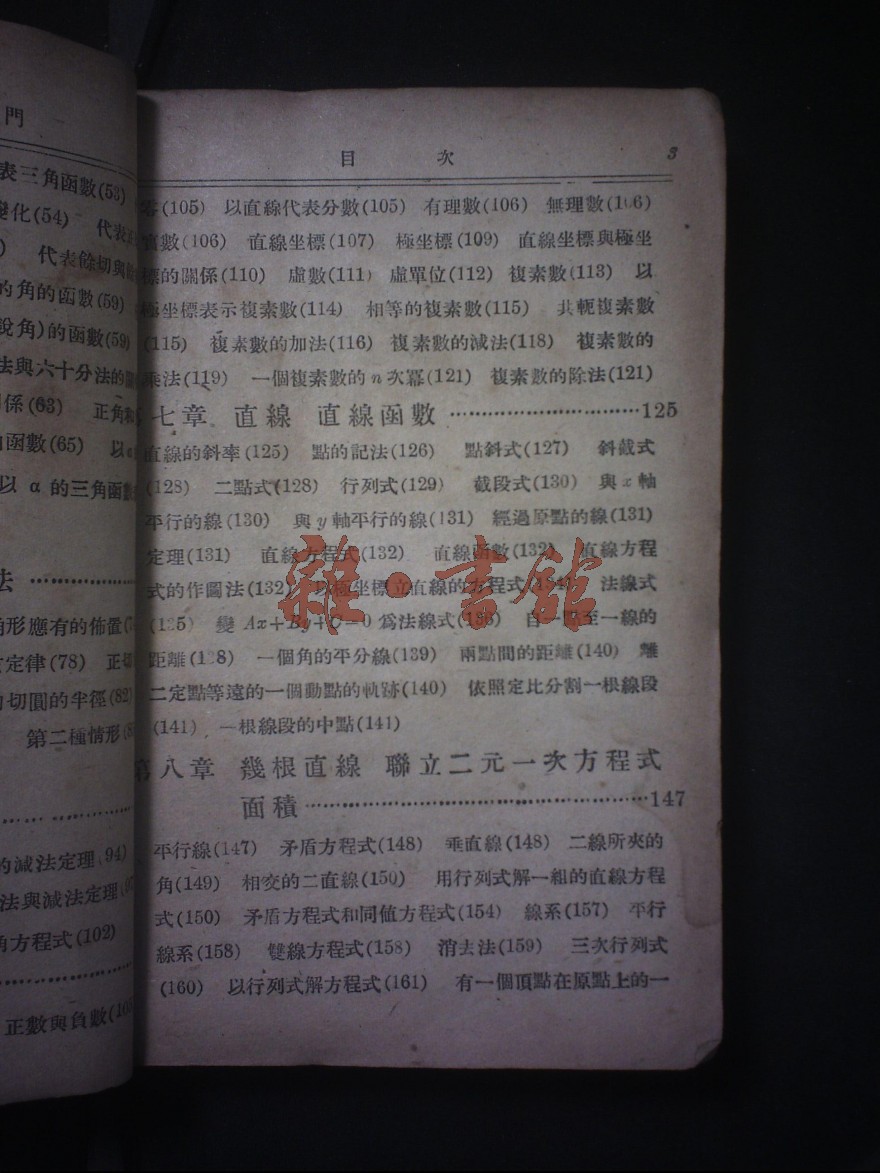 門
表三角函數(53)
變化(54) 代表
代表餘切與
的角的函數(59)
銳角)的函數(59)
法與六十分法的
係(63) 正角和
函數(65) 以
以 α 的三角函數
法
角形應有的佈置
定律(78) 正切
切圓的半徑(82)
第二種情形
的減法定理(94)
法與減法定理
角方程式(102)
正數與負數
目次 3
零(105) 以直線代表分數(105) 有理數(106) 無理數(106)
實數(106) 直線坐標(107) 極坐標(109) 直線坐標與極坐
標的關係(110) 虛數(111) 虛單位(112) 複素數(113) 以
極坐標表示複素數(114) 相等的複素數(115) 共軛複素數
(115) 複素數的加法(116) 複素數的減法(118) 複素數的
乘法(119) 一個複素數的 n 次冪(121) 複素數的除法(121)
七章 直線 直線函數 ································125
直線的斜率(125) 點的記法(126) 點斜式(127) 斜截式
(128) 二點式(128) 行列式(129) 截段式(130) 與 x 軸
平行的線(130) 與 y 軸平行的線(131) 經過原點的線(131)
定理(131) 直線方程式(132) 直線函數(132) 直線方程
式的作圖法(132) 以極坐標立直線的方程式(134) 法線式
(135) 變 Ax+By+C=0 爲法線式(136) 自一點至一線的
距離(138) 一個角的平分線(139) 兩點間的距離(140) 離
二定點等遠的一個動點的軌跡(140) 依照定比分割一根線段
(141) 一根線段的中點(141)
第八章 幾根直線 聯立二元一次方程式
面積··················································147
平行線(147) 矛盾方程式(148) 垂直線(148) 二線所夾的
角(149) 相交的二直線(150) 用行列式解一組的直線方程
式(150) 矛盾方程式和同値方程式(154) 線系(157) 平行
線系(158) 雙線方程式(158) 消去法(159) 三次行列式
(160) 以行列式解方程式(161) 有一個頂點在原點上的一
雜·書館